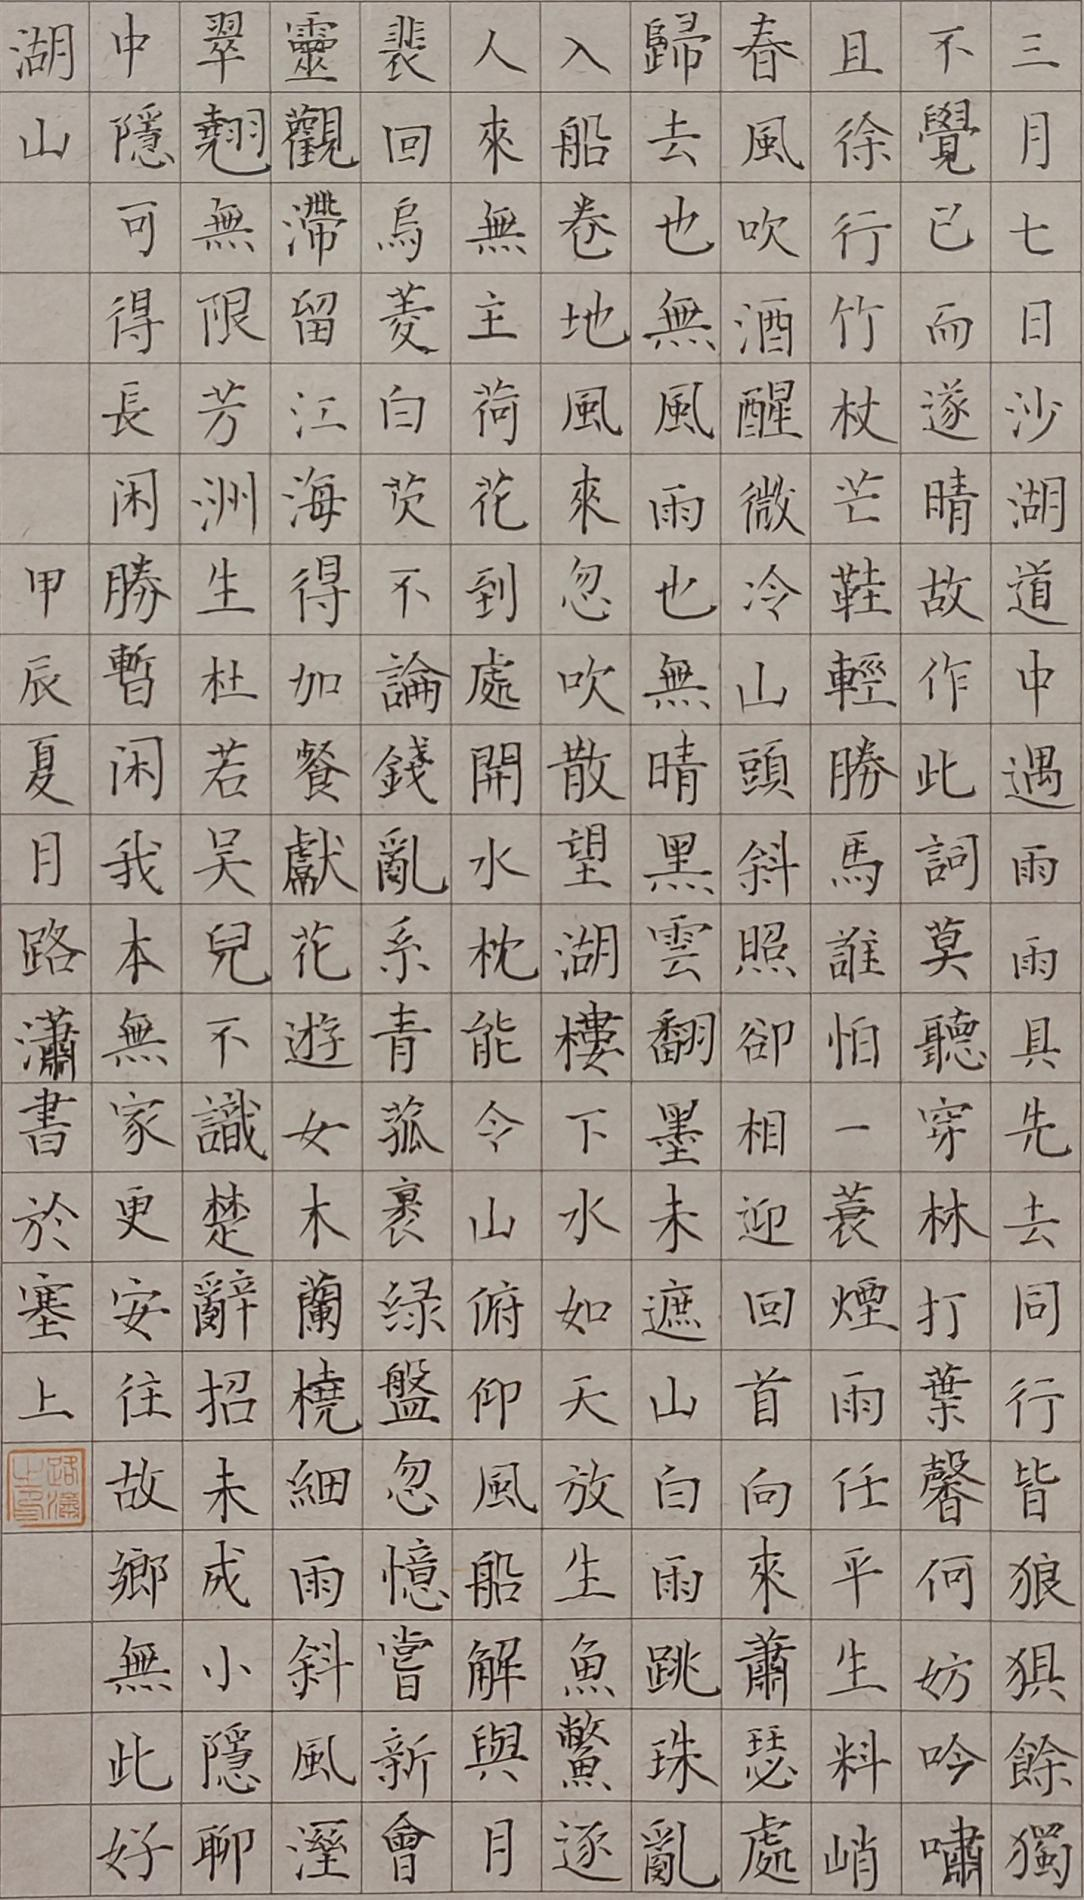 三月七日沙湖道中遇雨雨具先去同行皆狼狽餘獨
不覺已而遂晴故作此詞莫聽穿林打葉馨何妨吟嘯
且徐行竹杖芒鞋輕勝馬誰怕一蓑煙雨任平生料峭
春風吹酒醒微冷山頭斜照卻相迎回首向來蕭瑟處
歸去也無風雨也無晴黑雲翻墨未遮山白雨跳珠亂
入船卷地風來忽吹散望湖樓下水如天放生魚鱉逐
人來無主荷花到處開水枕能令山俯仰風船解與月
裴回烏菱白芡不論錢亂系青菰裹绿盤忽憶嘗新會
靈觀滯留江海得加餐獻花遊女木蘭橈細雨斜風溼
翠翹無限芳洲生杜若吳兒不識楚辭招未成小隱聊
中隱可得長闲勝暫闲我本無家更安往故鄉無此好
湖山 甲辰夏月路瀟書於塞上
路瀟之印